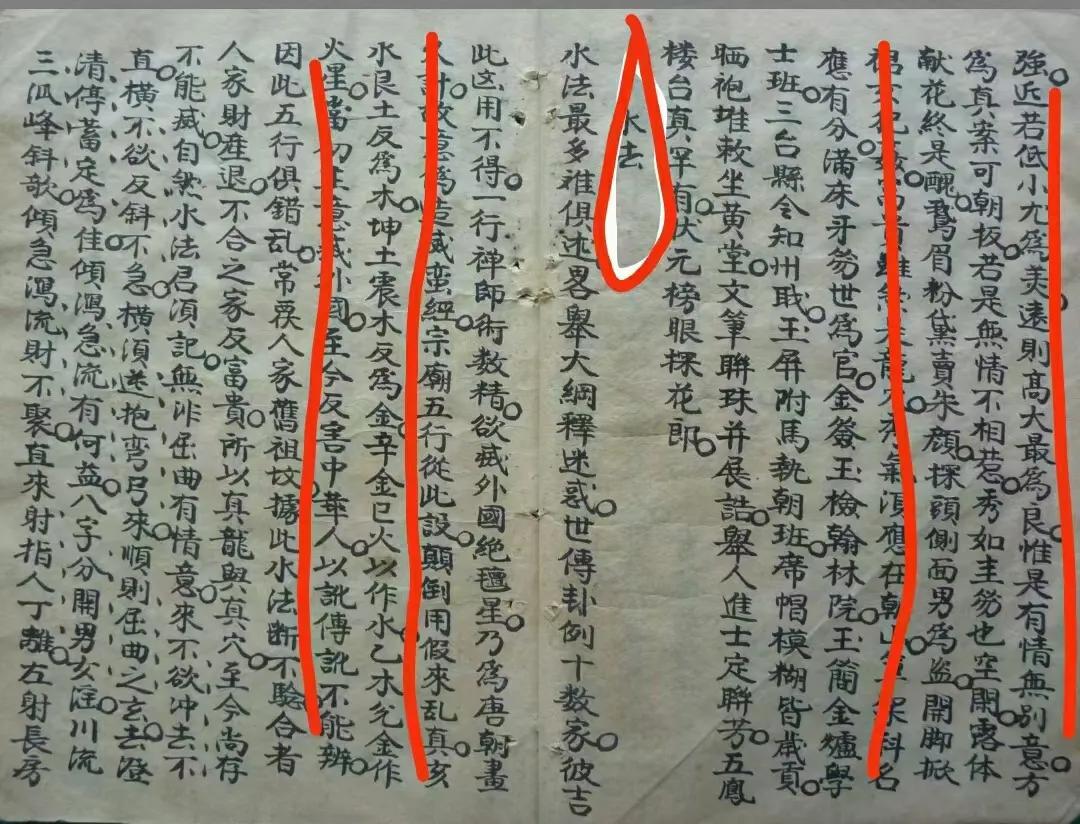 強近若低小尤爲美遠則高大最爲良惟是有情無别意方
爲真案可朝扳若是無情不相惹秀如圭笏也空開露体
献花終是醜鵞眉粉黛賣朱顔探頭側面男爲盗開脚掀
龍穴秀氣須應在朝山科名
應有分滿床牙笏世爲官金簽玉檢翰林院玉簡金爐學
士班三台縣令知州戝玉屏附馬執朝班席帽模糊皆歲貢
晒袍堆敕坐黄堂文筆聯珠并展誥舉人進士定聯芳五鳳
楼台真罕有状元榜眼探花郎
水法
水法最多难俱述畧舉大綱釋迷惑世傳卦例十数家彼吉
此凶用不得一行禅師術数精欲滅外國絶氊星乃爲唐朝畫
計故意爲造滅蛮經宗廟五行從此設顛倒用假來乱真亥
水艮土反爲木坤土震木反爲金辛金巳火以作水乙木兌金作
火星當初主意滅外國至今反害中華人以訛傳訛不能辨
因此五行俱錯乱常葬人家舊祖坟據此水法断不驗合者
人家財産退不合之家反富貴所以真龍與真穴至今尚存
不能滅自然水法君須記無非屈曲有情意來不欲冲去不
直横不欲反斜不急横須遶抱弯弓來順則屈曲之玄去澄
清停蓄定爲佳傾瀉急流有何益八字分開男女淫川流
三瓜峰斜欹傾急瀉流財不聚直來射指人丁離左射長房